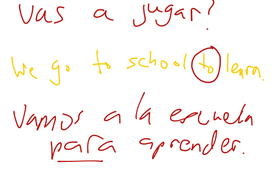 vas a jugar?
We go to school to learn.
Vamos a la escuela
para aprender.